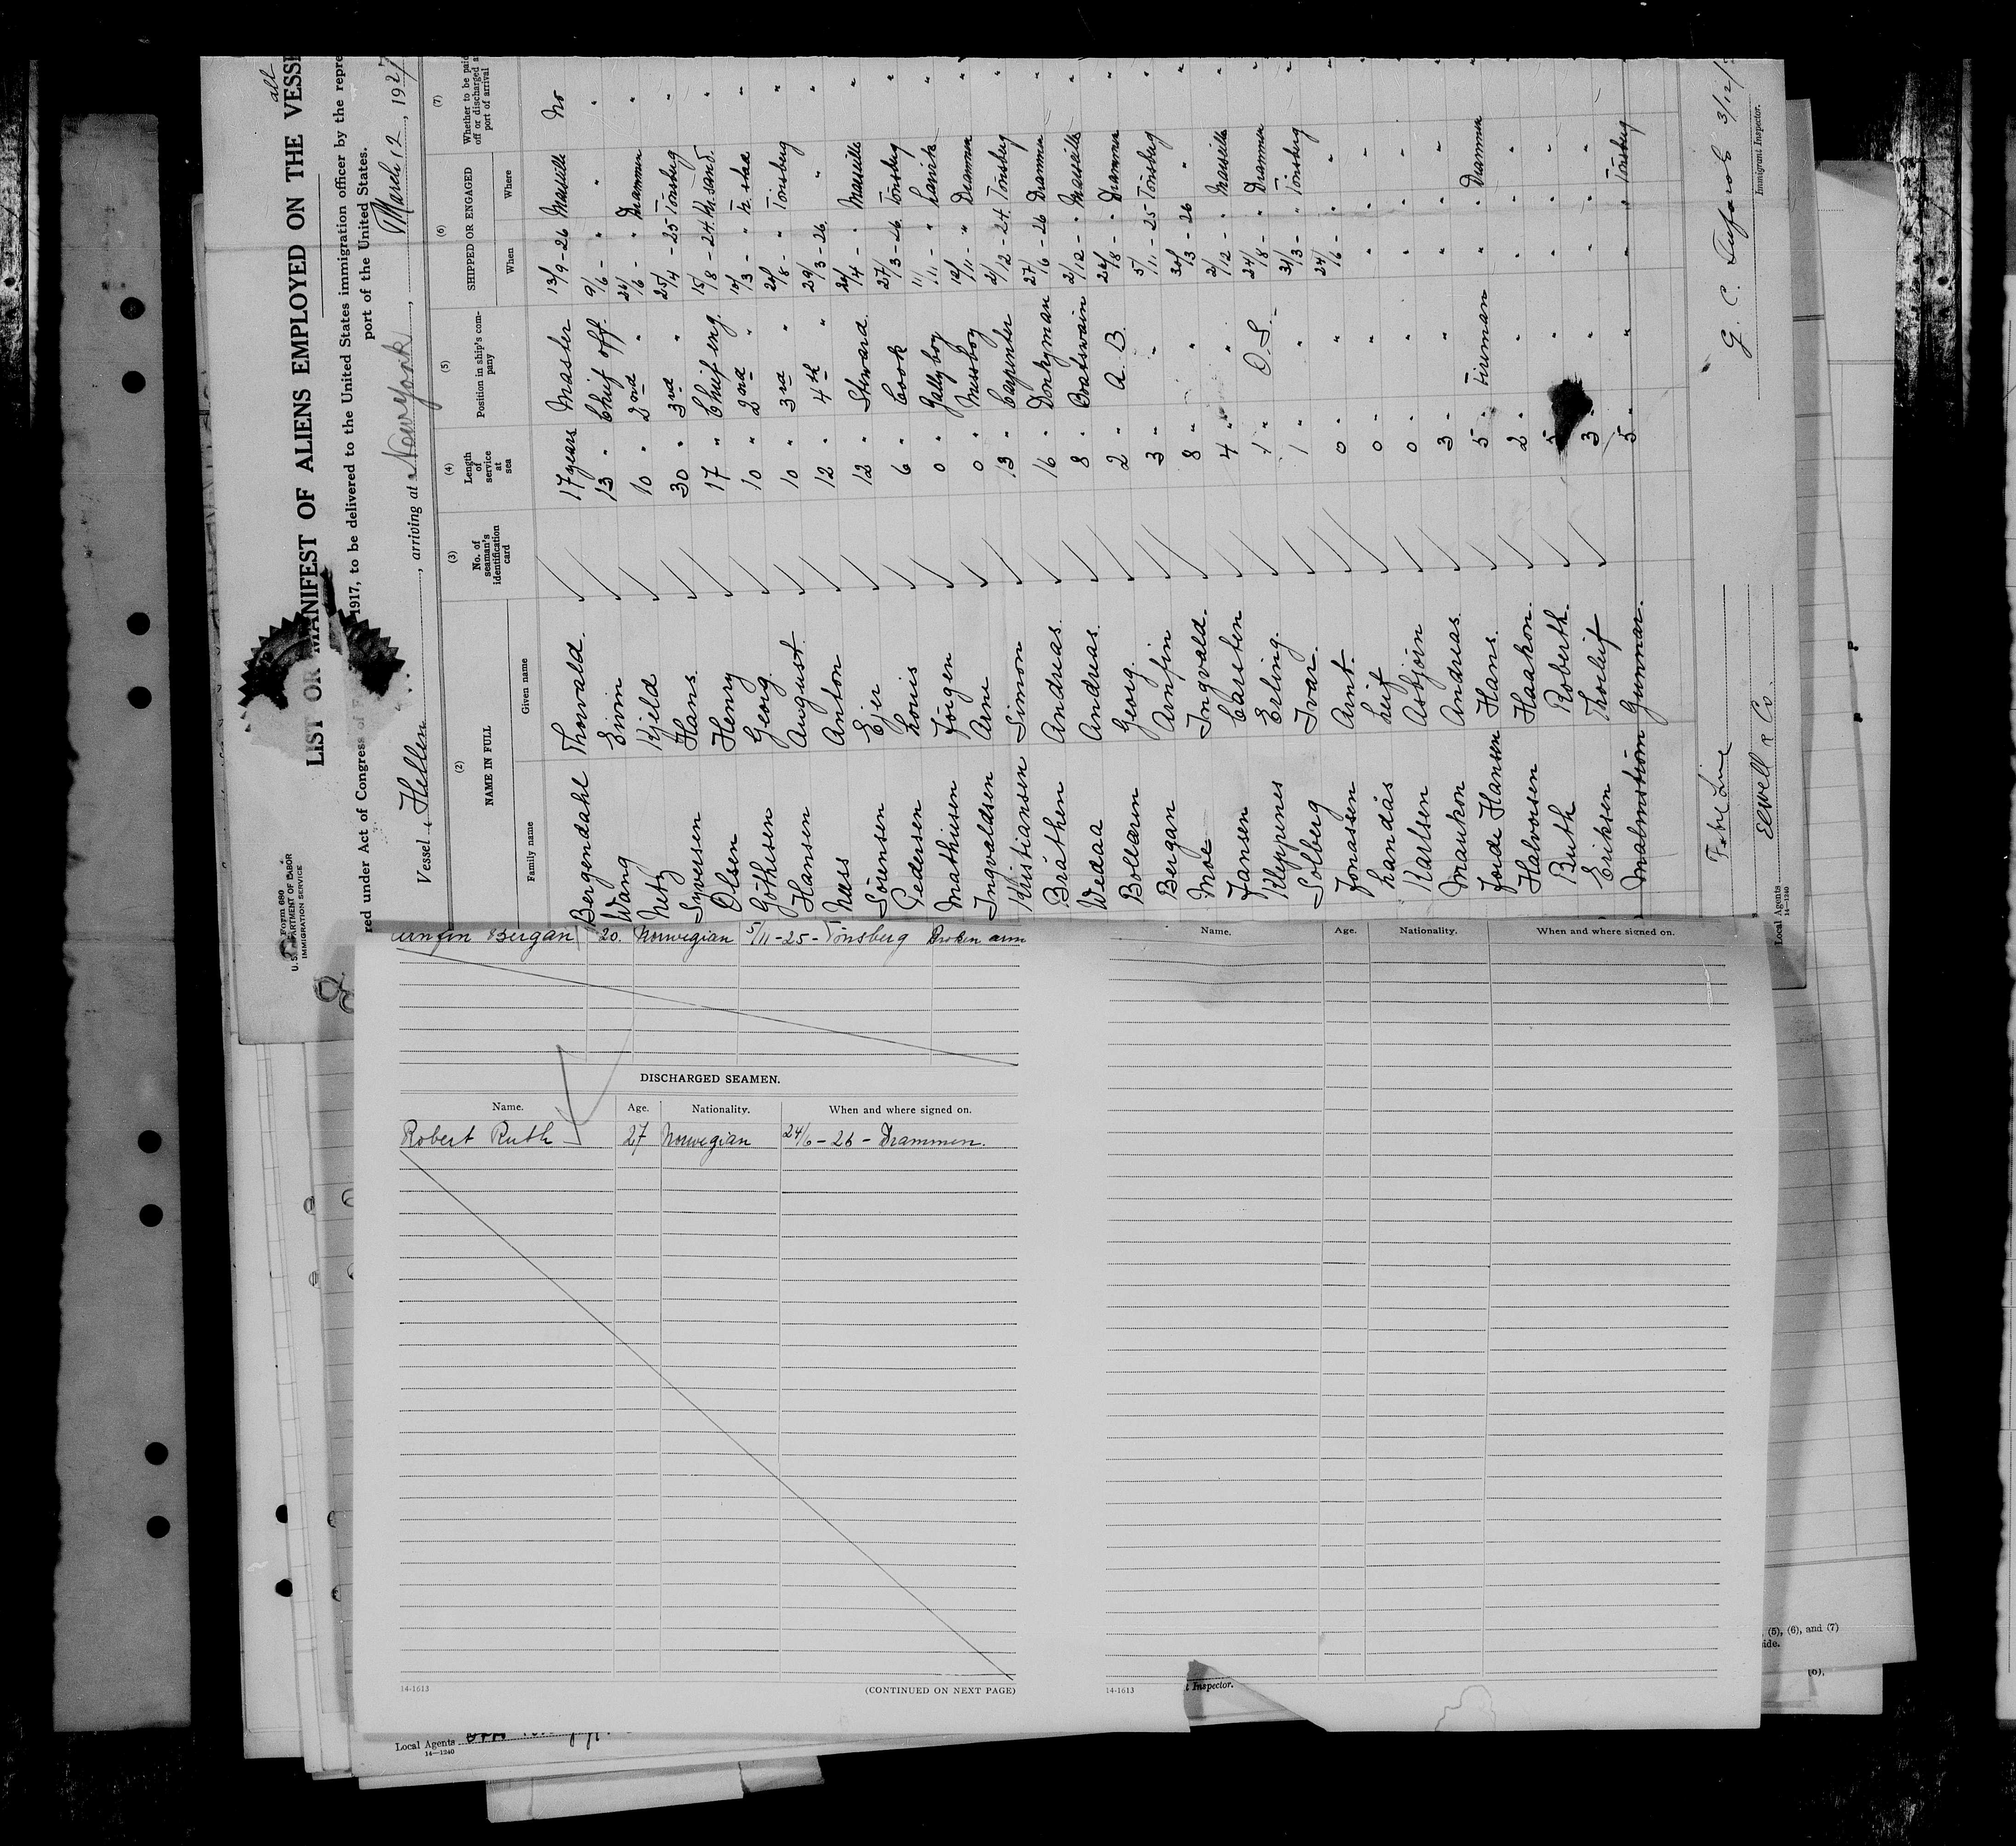 Form 689
U.S. DEPARTMENT OF LABOR
IMMIGRATION SERVICE
all
LIST OR MANIFEST OF ALIENS EMPLOYED ON THE VESSE
red under Act of Congress of F 1917, to be delivered to the United States immigration officer by the repre
port of the United States.
Vessel Hellen, arriving at New york, March 12, 1927
(2) (3) (4) (5) (6) (7)
NAME IN FULL
Family name Given name
No. of seaman's identification card
Length of service at sea
Position in ship's company
SHIPPED OR ENGAGED
When Where
Whether to be paid off or discharged at port of arrival
Bergendahl Thorvald. 17 years Master 13/9-26 Marseille No
Wang Eivin 13 " Chief off. 9/6 - " " "
Netz Kjeld 10 " 2nd " 26/6 - " Drammen "
Syversen Hans. 30 " 3rd " 25/4 - 25 Tönsberg "
Olsen Henry 17 " Chief eng. 15/8 - 24 Kr.sand. "
Göthesen Georg. 10 " 2nd " 10/3 - " "
Hansen August. 10 " 3rd " 24/8 - " Tönsberg "
Næss Anton 12 " 4th " 29/3 - 26 " "
Sörensen Ejer 12 " Steward. 24/4 - " Marseille "
Pedersen Louis 6 " Cook 27/3 - 26 Tönsberg "
Mathiesen Jörgen 0 " Gallyboy 11/11 - " Larvik "
Ingvaldsen Arne 0 " Messboy 12/11 - " Drammen "
Kristiansen Simon 13 " Carpenter 2/12 - 24 Tönsberg "
Bråthen Andreas. 16 " Donkyman 27/6 - 26 Drammen "
Wedaa Andreas. 8 " Boatswain 2/12 - " Marseille "
Bollærn Georg. 2 " A. B. 24/8 - " Drammen "
Bergan Arnfin 3 " " 5/11 - 25 Tönsberg "
Moe Ingvald. 8 " " 30/3 - 26 " "
Jansen Carsten 4 " " 2/12 - " Marseille "
Kleppenes Erling. 1 " O. S. 24/8 - " Drammen "
Solberg Ivar. 1 " " 31/3 - " Tönsberg "
Jonassen Arnt. 0 " " 24/6 - " " "
Landås Leif 0 " " " " " "
Karlsen Asbjörn 0 " " " " " "
Markon Andreas. 3 " " " " " "
Hansen Hans. 5 " Fireman " " Drammen "
Halvorsen Haakon. 2 " " " " " "
Ruth Roberth. " " " " "
Eriksen Thorleif 3 " " " " " "
Malmström Gunnar. 5 " " " " Tönsberg
Fabre Line
Local Agents Elwell & Co.
14—1240
G. C. 3/12/
Immigrant Inspector.
Arnfin Bergan 20. Norwegian 5/11-25-Tönsberg Broken arm
DISCHARGED SEAMEN.
Name. Age. Nationality. When and where signed on.
Robert Ruth 27 Norwegian 24/6-26-Drammen.
14-1613
(CONTINUED ON NEXT PAGE)
Name. Age. Nationality. When and where signed on.
14-1613
t Inspector.
Local Agents
14—1240
, (5), (6), and (7)
ide.
(6),